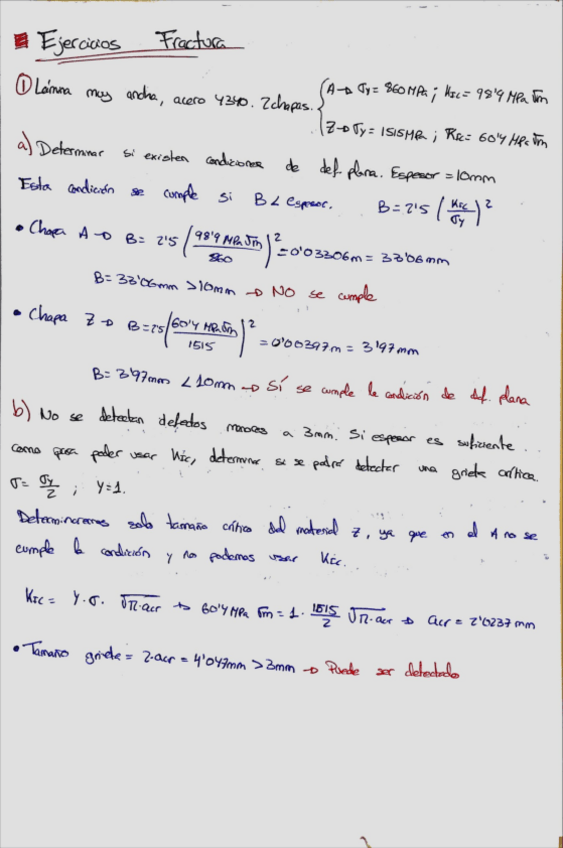 Ejercicios Fractura
① Lámina muy ancha, acero 4340. 2 chapas. { A → σy = 860 MPa ; KIC = 98'9 MPa √m
Z → σy = 1515 MPa ; KIC = 60'4 MPa √m
a) Determinar si existen condiciones de def. plana. Espesor = 10mm
Esta condición se cumple si B < espesor. B = 2'5 (KIC/σy)²
• Chapa A → B = 2'5 (98'9 MPa √m / 860)² = 0'03306 m = 33'06 mm
B = 33'06mm > 10mm → NO se cumple
• Chapa Z → B = 2'5 (60'4 MPa √m / 1515)² = 0'00397 m = 3'97 mm
B = 3'97mm < 10mm → SÍ se cumple la condición de def. plana
b) No se detectan defectos menores a 3mm. Si espesor es suficiente
como para poder usar KIC, determinar si se podrá detectar una grieta crítica.
σ = σy/2 ; Y = 1.
Determinaremos solo tamaño crítico del material Z, ya que en el A no se
cumple la condición y no podemos usar KIC.
KIC = Y · σ · √(π·acr) → 60'4 MPa √m = 1 · 1515/2 √(π·acr) → acr = 2'0237 mm
• Tamaño grieta = 2·acr = 4'047mm > 3mm → Puede ser detectado